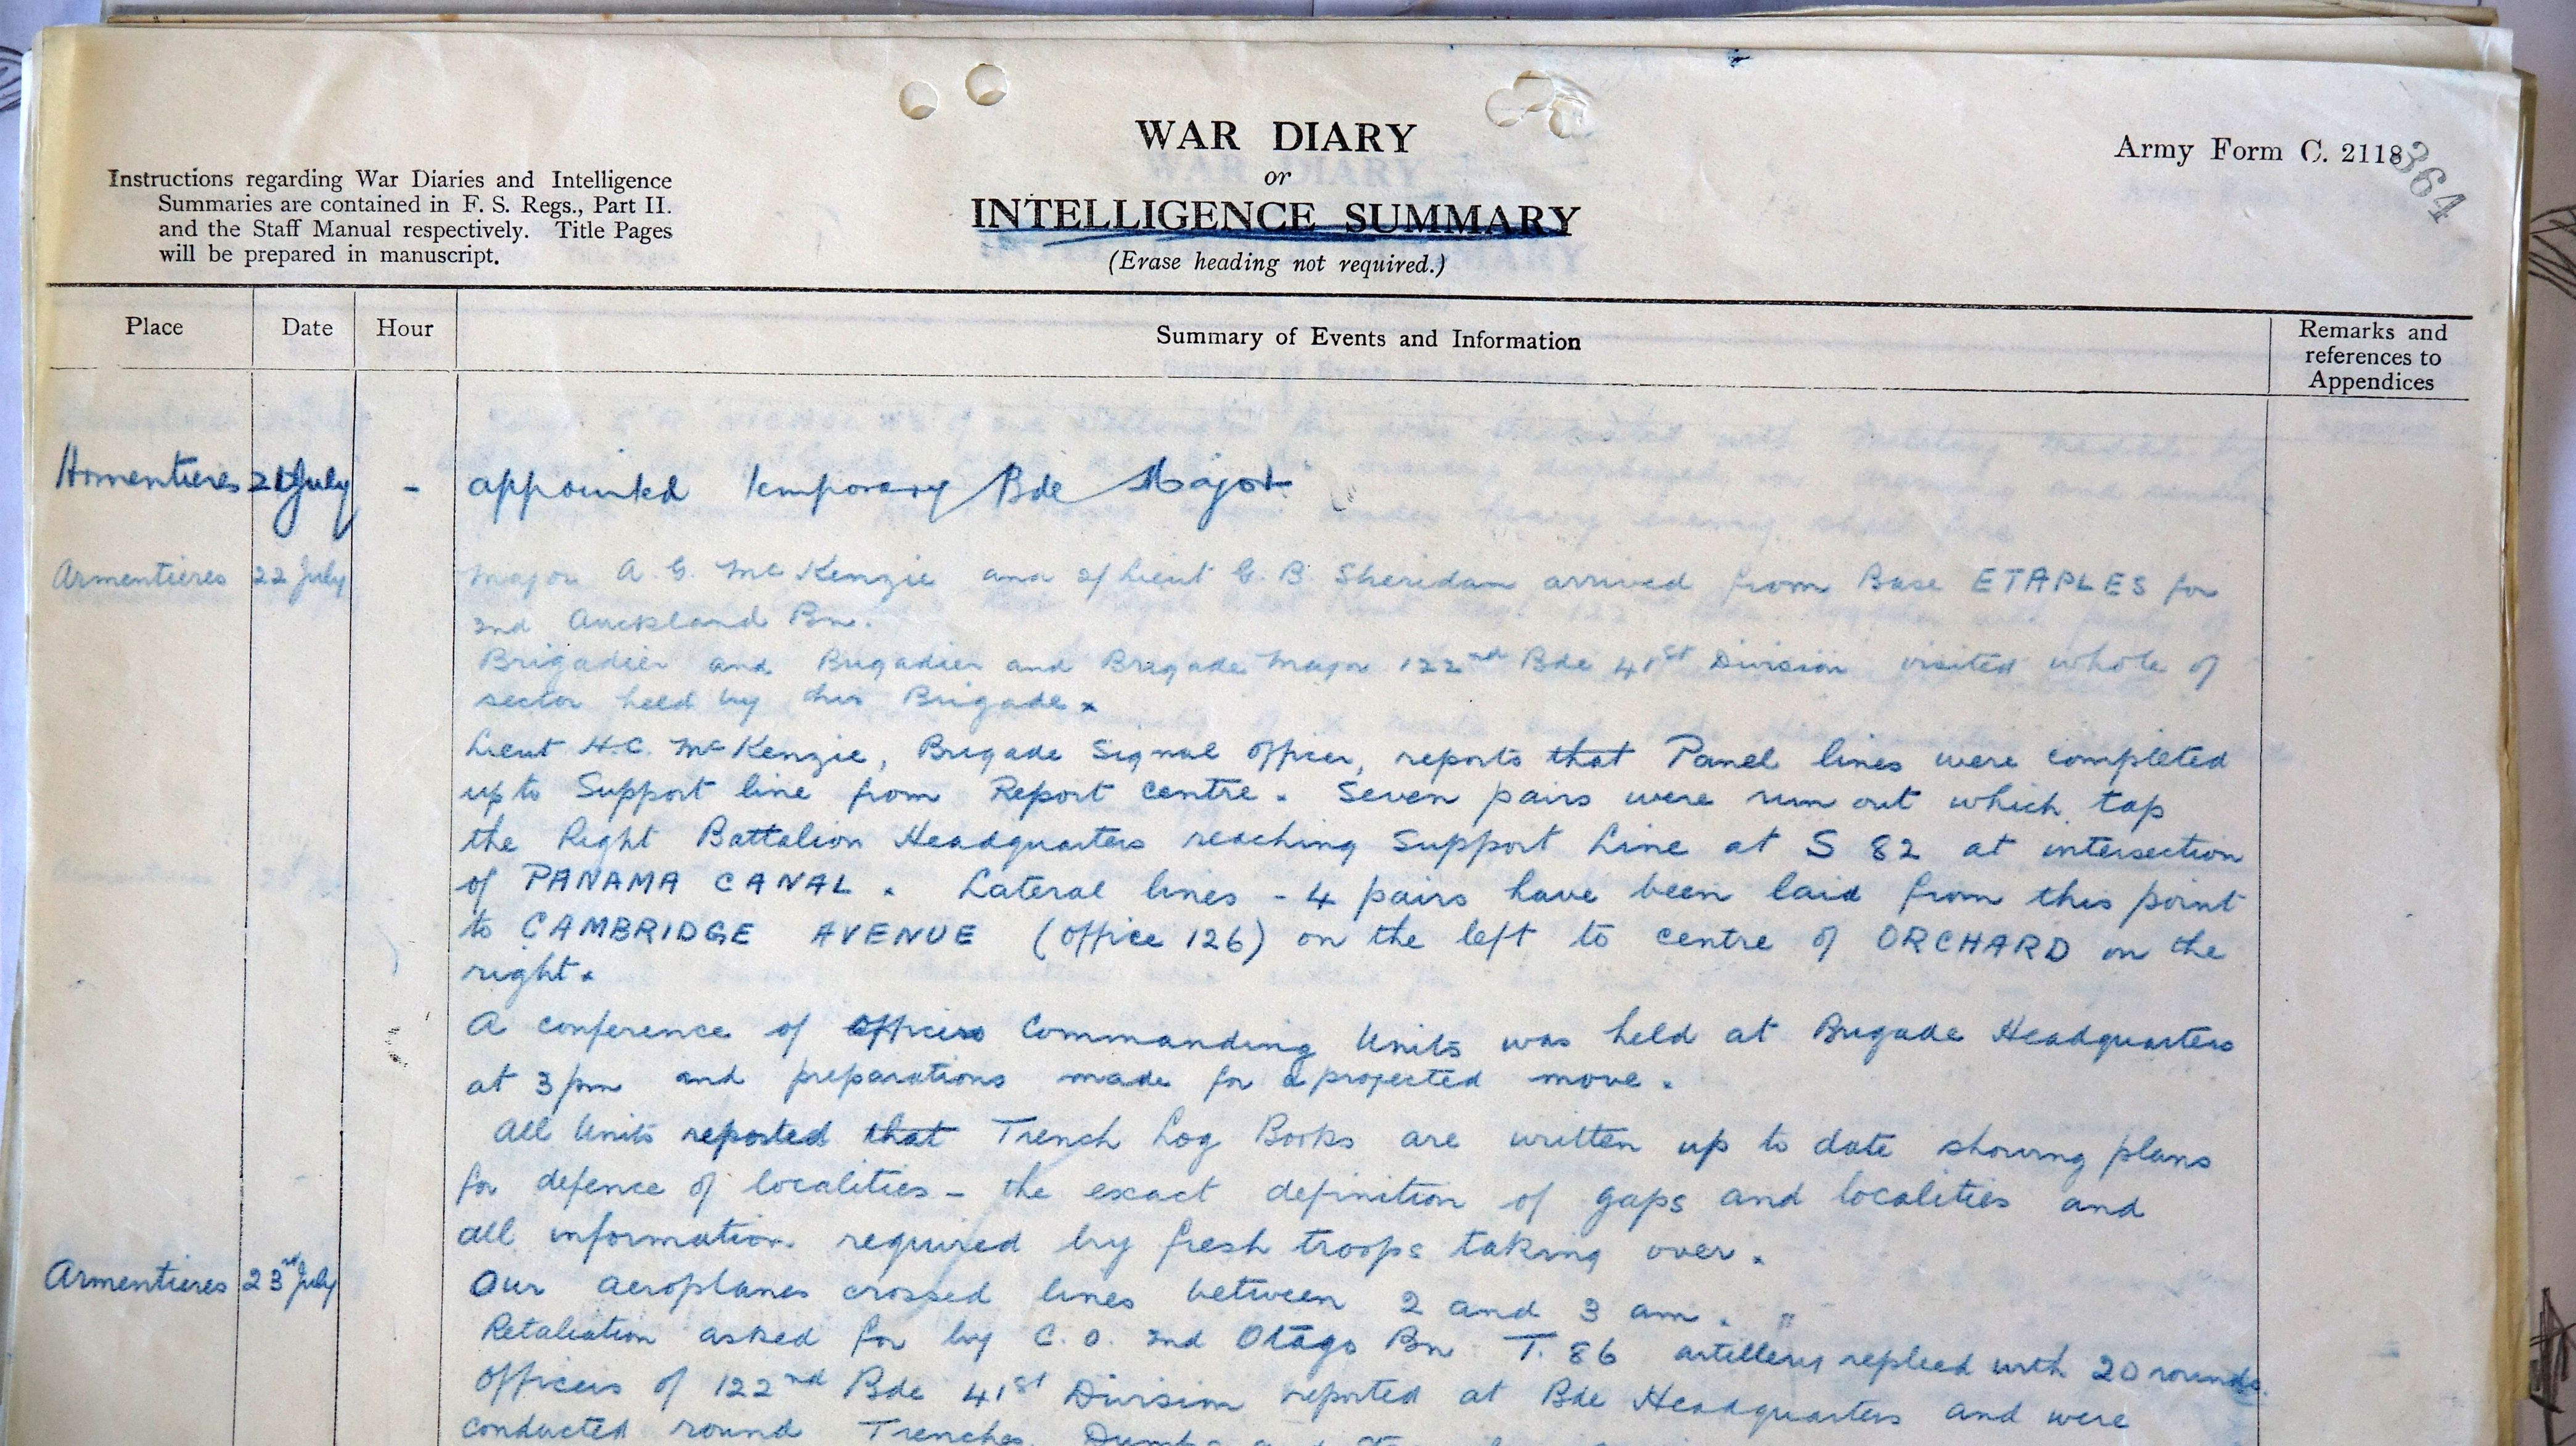 WAR DIARY
or
INTELLIGENCE SUMMARY
(Erase heading not required.)
Army Form C. 2118
364
Instructions regarding War Diaries and Intelligence
Summaries are contained in F. S. Regs., Part II.
and the Staff Manual respectively. Title Pages
will be prepared in manuscript.
Place Date Hour Summary of Events and Information Remarks and
references to
Appendices
Armentieres 21 July - appointed temporary Bde Major
Armentieres 22 July Major A. G. McKenzie and 2/Lieut G. B. Sheridan arrived from Base ETAPLES for
2nd Auckland Bn.
Brigadier and Brigadier and Brigade Major 122nd Bde 41st Division visited whole of
sector held by this Brigade.
Lieut H.C. McKenzie, Brigade Signal Officer, reports that Panel lines were completed
up to Support line from Report centre. Seven pairs were run out which tap
the Right Battalion Headquarters reaching Support Line at S 82 at intersection
of PANAMA CANAL. Lateral lines - 4 pairs have been laid from this point
to CAMBRIDGE AVENUE (office 126) on the left to centre of ORCHARD on the
right.
A conference of Officers Commanding Units was held at Brigade Headquarters
at 3 pm and preparations made for a projected move.
All Units reported that Trench Log Books are written up to date showing plans
for defence of localities - the exact definition of gaps and localities and
all information required by fresh troops taking over.
Armentieres 23rd July Our aeroplanes crossed lines between 2 and 3 am.
Retaliation asked for by C. O. 2nd Otago Bn T. 86 artillery replied with 20 rounds.
Officers of 122nd Bde 41st Division reported at Bde Headquarters and were
conducted round Trenches, Dumps and